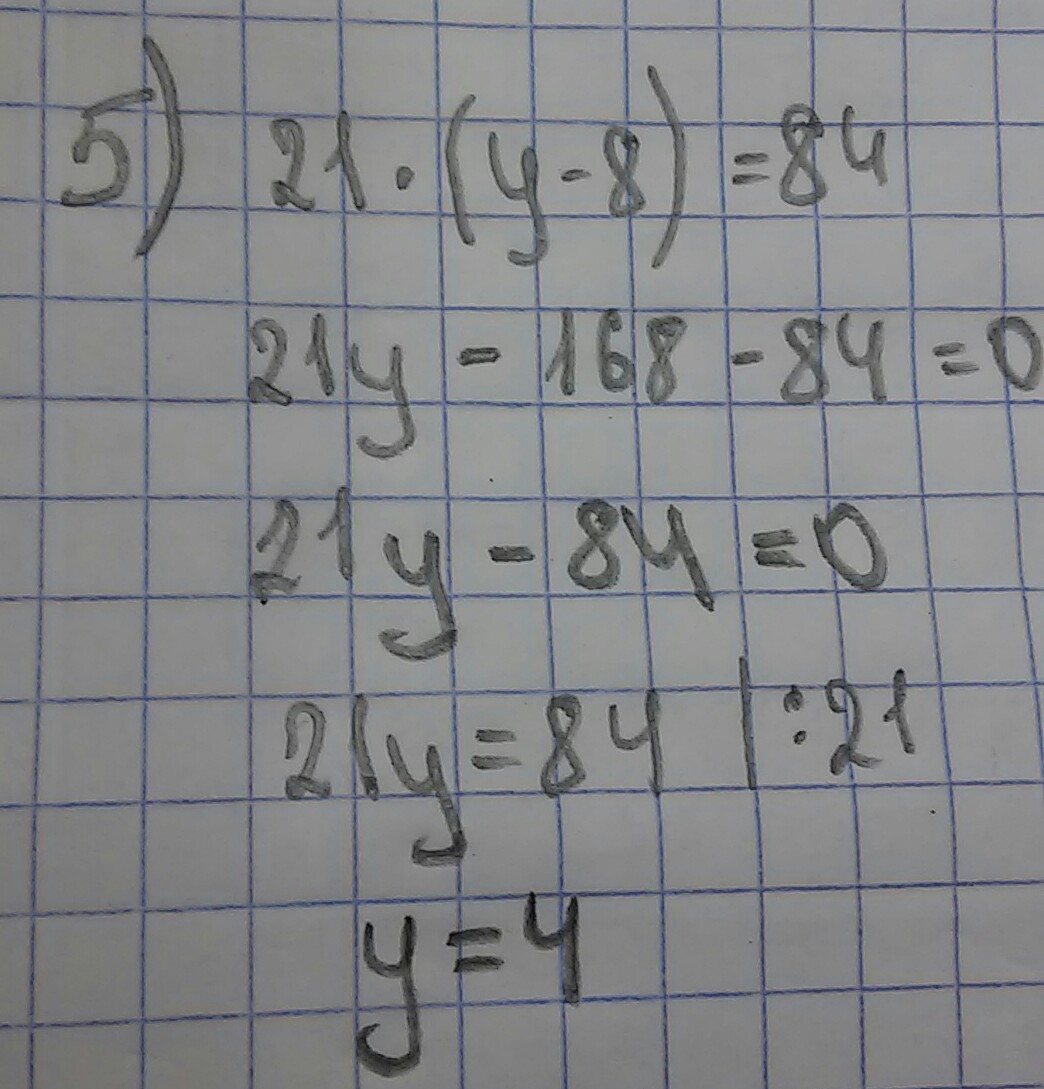 5) 21·(y-8)=84
21y-168-84=0
21y-84=0
21y=84 |:21
y=4